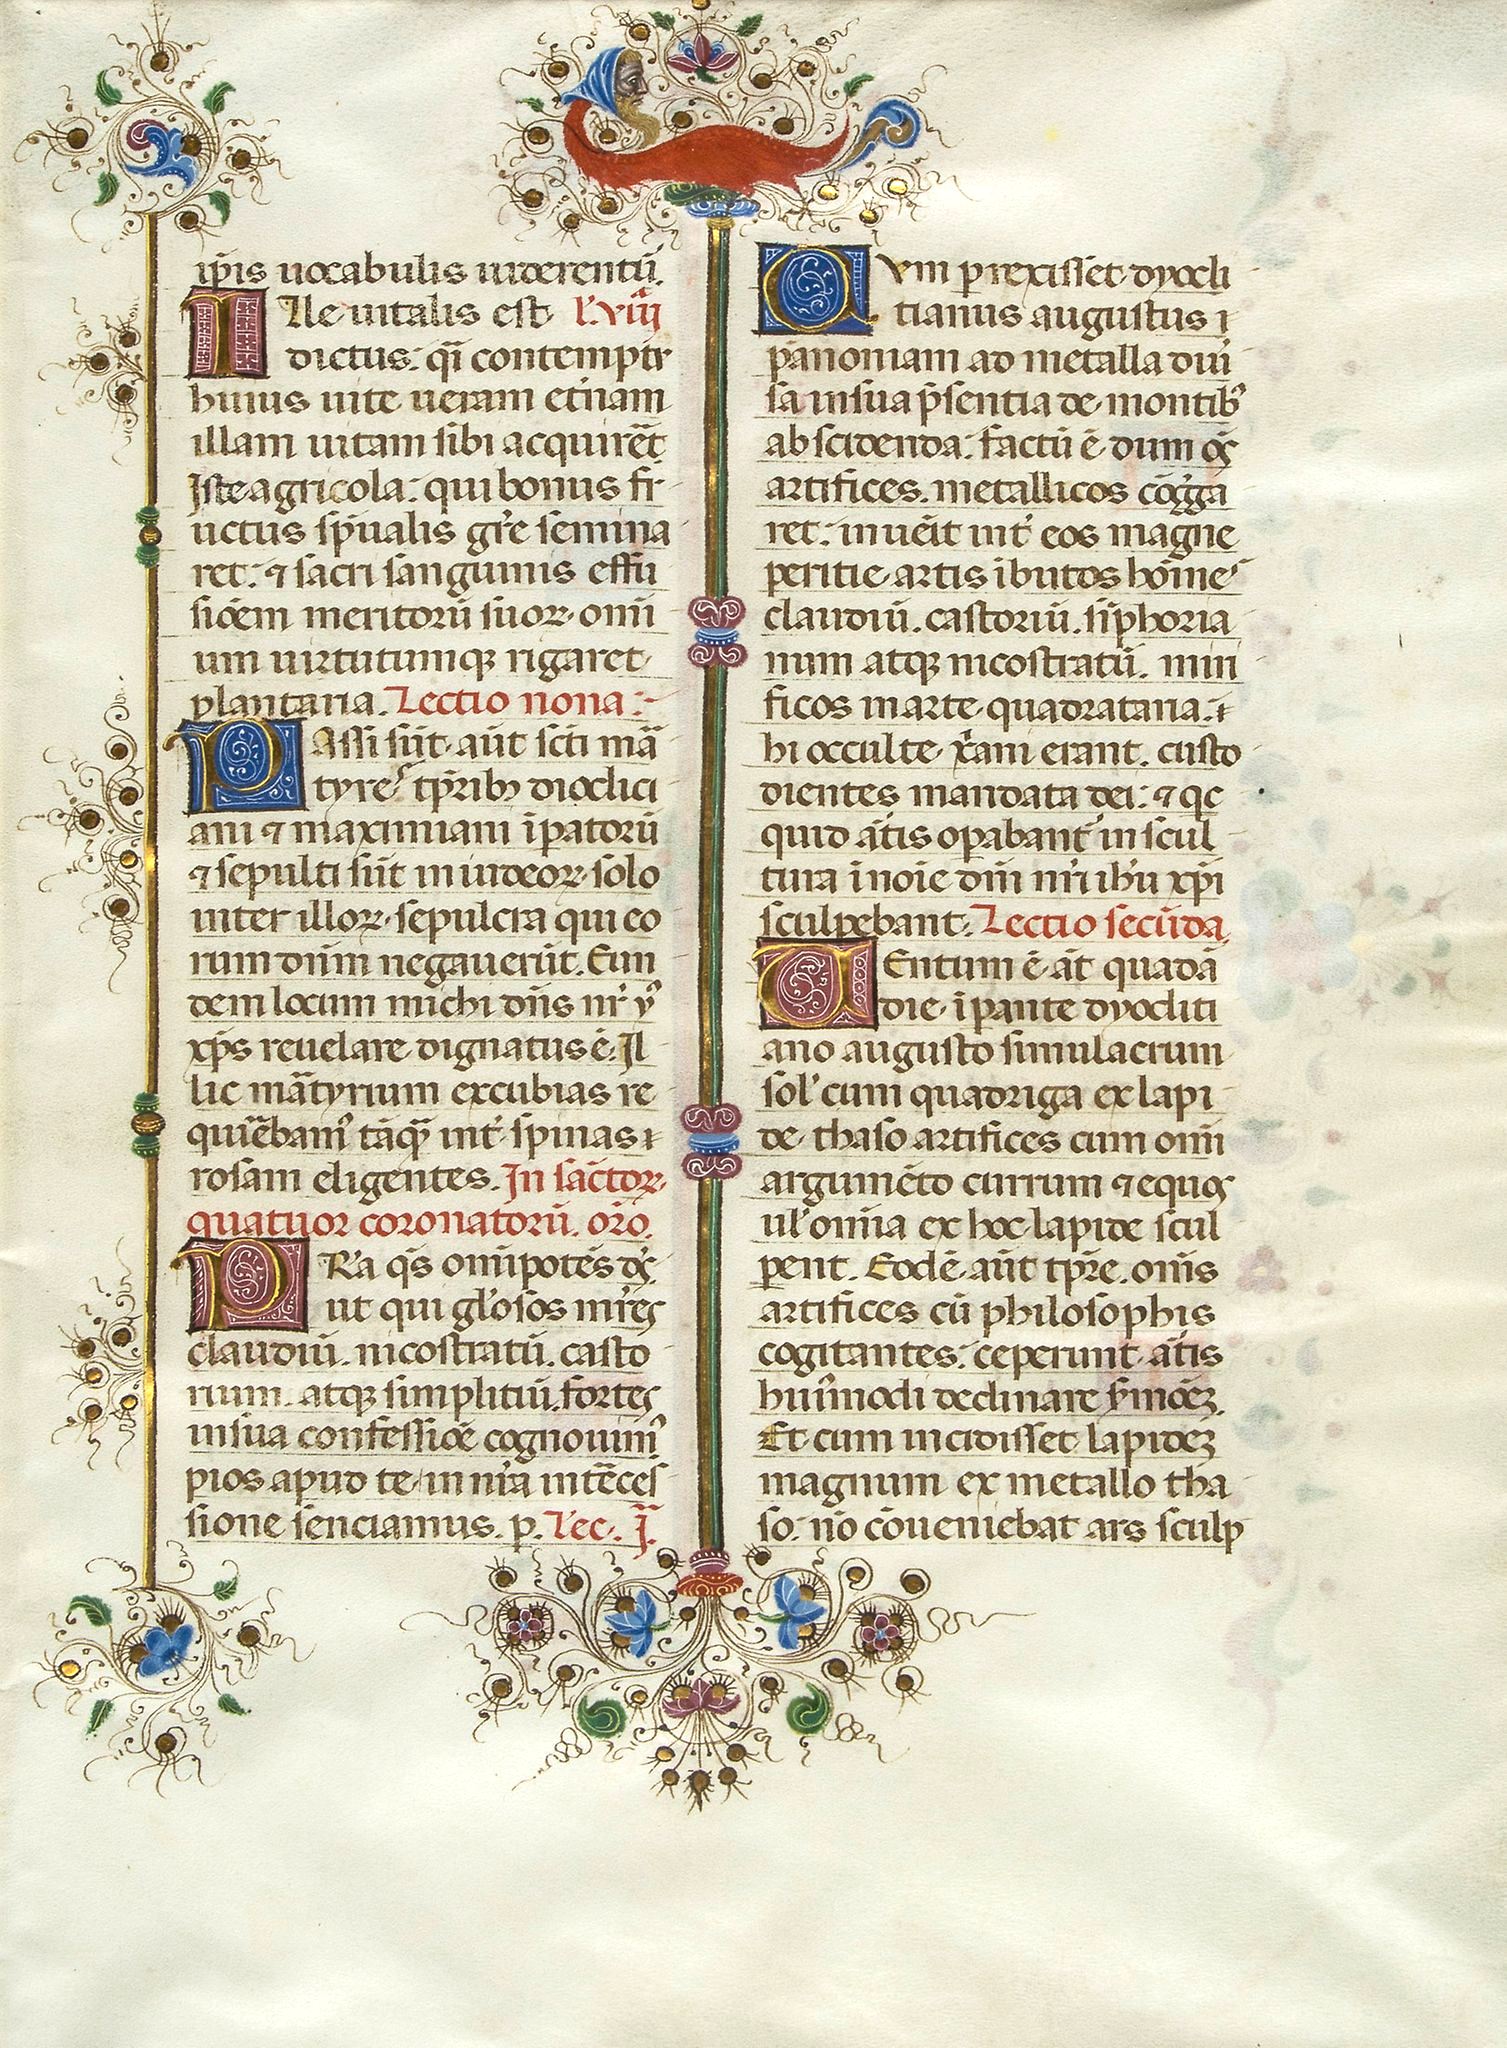 ip̄is uocabulis uiderentū.
Ille uitalis est L'. viij
dictus: qī contemptr
huius uite ueram et̄nam
illam uitam sibi acquirēt
Iste agricola: qui bonus fr
uctus sp̄ualis gr̄e semina
ret: ⁊ sacri sanguinis effu
siōem meritorū suoꝝ omī
um uirtutumqꝫ rigaret
plantaria. Lectio nona:
Passi sūt aūt scti mā
tyres tp̄ribꝫ dioclici
ani ⁊ maximiani īpatorū
⁊ sepulti sūt in iudeoꝝ solo
inter illoꝝ sepulcra qui eo
rum dūm negauerūt. Eun
dem locum michi dn̄s nr̄
xp̄s reuelare dignatus ē. Il
lic mātyrium excubias re
quirēbam' tāqꝫ int̄ spinas ⁊
rosam eligentes. In sāctoꝝ
quatuor coronatorū. oŕo.
PRa qs̄ omīpotēs ds̄
ut qui gl'osos mr̄es
claudiū. nicostratū. casto
rium. atqꝫ simplitiū. fortes
in sua confessiōe cognouim'
pios apud te in nr̄a int̄ces
sione senciamus. p. Lec. j.ª
CVm prexisset dyocli
tianus augustus ī
panoniam ad metalla diu'
sa in sua p̄sentia de montib'
abscidenda: factū ē dum os̄
artifices. metallicos cōgga
ret: inueīt int̄ eos magne
peritie artis ībutos hōines
claudiū. castoriū. sīphoria
num atqꝫ nicostratū. miri
ficos in arte quadrataria. ⁊
hi occulte xāni erant. custo
dientes mandata dei: ⁊ qc
quid ātis op̄abant̄ in scul
tura ī noīe dn̄i nr̄i ihū xp̄i
sculpebant. Lectio secūda
UEntum ē āt quadā
die īpante dyocliti
ano augusto simulacrum
sol' cum quadriga ex lapi
de thaso artifices cum omī
argumēto currum ⁊ equos
ul' omīa ex hoc lapide scul
pent. Eodē aūt tp̄re. omīs
artifices cū philosophis
cogitantes: ceperunt ātis
huīmodi declinare s̄moēꝫ.
Et cum incidisset lapideꝫ
magnum ex metallo tha
so: nō cōueniebat ars sculp